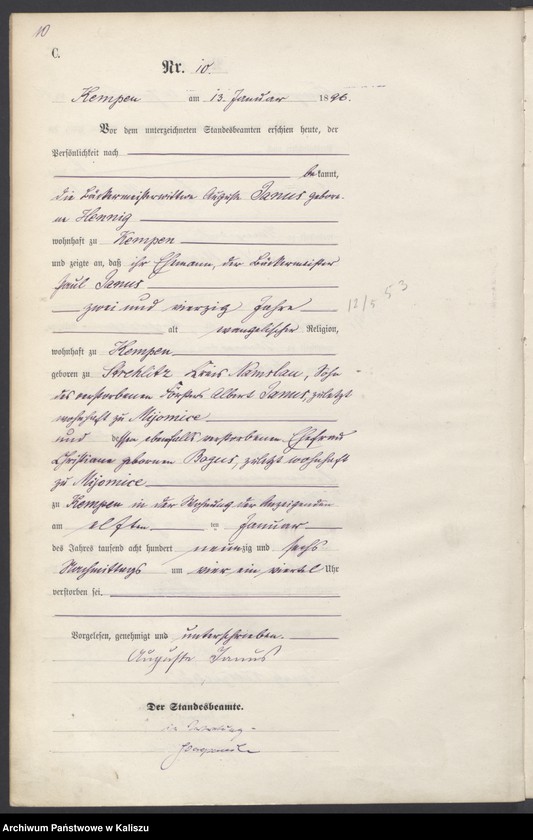 10
C.
Nr. 10.
Kempen am 13. Januar 1896.
Vor dem unterzeichneten Standesbeamten erschien heute, der
Persönlichkeit nach
bekannt,
die Bäckermeisterwittwe Auguste Janus gebore-
ne Hennig
wohnhaft zu Kempen
und zeigte an, daß ihr Ehemann, der Bäckermeister
Paul Janus
zwei und vierzig Jahre
12/5 53
alt evangelischer Religion,
wohnhaft zu Kempen
geboren zu Strehlitz Kreis Namslau, Sohn
des verstorbenen Försters Albert Janus, zuletzt
wohnhaft zu Mijomice
und dessen ebenfalls verstorbenen Ehefrau
Christiane geborenen Bogus, zuletzt wohnhaft
zu Mijomice
zu Kempen in der Wohnung der Anzeigenden
am elften ten Januar
des Jahres tausend acht hundert neunzig und sechs
Nachmittags um vier ein viertel Uhr
verstorben sei.
Vorgelesen, genehmigt und unterschrieben.
Auguste Janus
Der Standesbeamte.
In Vertretung
Archiwum Państwowe w Kaliszu